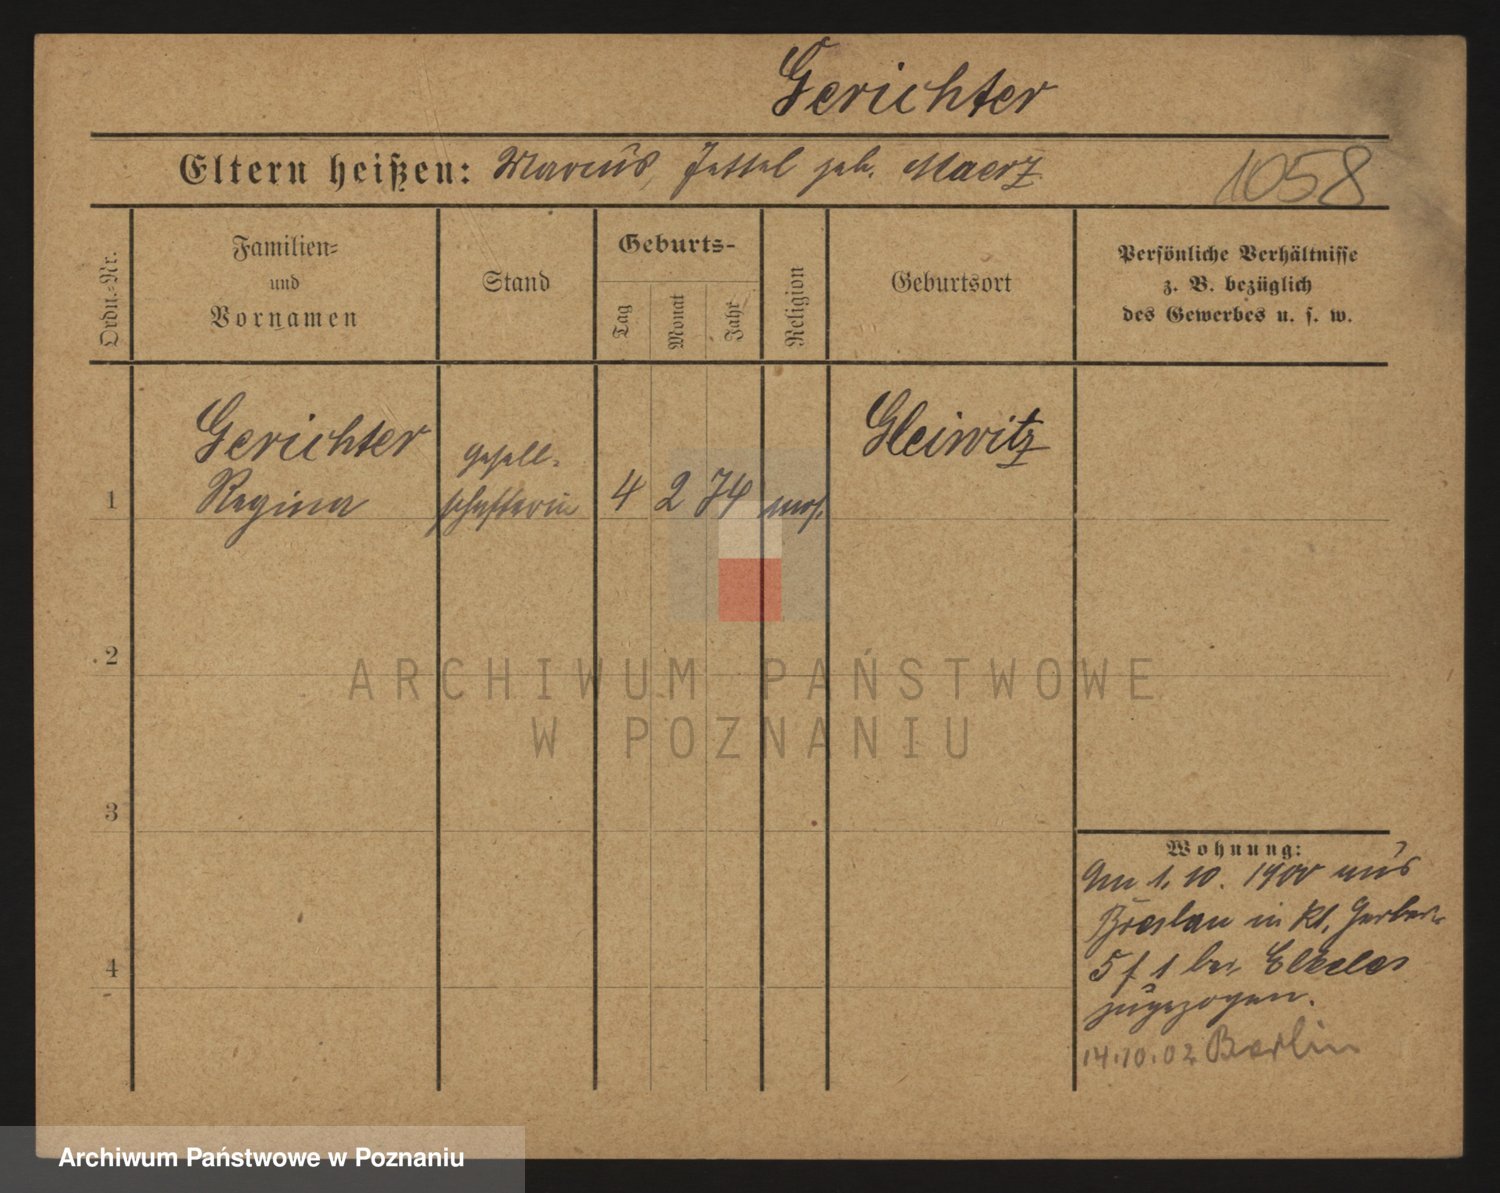 Gerichter
Eltern heißen: Marcus, Jettel geb. Maerz
1058
Ordn.-Nr.
Familien-
und
Vornamen
Stand
Geburts-
Tag
Monat
Jahr
Religion
Geburtsort
Persönliche Verhältnisse
z. B. bezüglich
des Gewerbes u. s. w.
1
Gerichter
Regina
Gesell-
schafterin
4 2 74 mos.
Gleiwitz
2
ARCHIWUM PAŃSTWOWE
W POZNANIU
3
4
Wohnung:
Am 1. 10. 1900 aus
Breslau in Kl. Gerber-
5 f 1 bei Elkeles
zugezogen.
14.10.02 Berlin
Archiwum Państwowe w Poznaniu